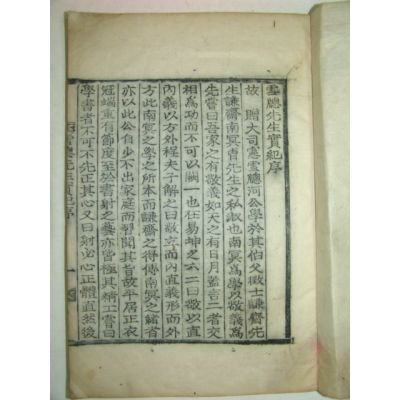 雪牕先生實紀序
故 贈大司憲雪牕河公學於其伯父徵士謙齋先
生謙齋南冥曺先生之私淑也南冥爲學以敬義爲
先嘗曰吾家之有敬義如天之有日月蓋言二者交
相爲功而不可以闕一也在易坤之六二曰敬以直
內義以方外程夫子解之曰敬立而內直義形而外
方此南冥之學之所本而謙齋之得傳南冥之緖者
亦以此公自少不出家庭而習聞其旨故平居正衣
冠端重有節度至於書射之藝亦皆極其精工嘗曰
學書者不可不先正其心又曰射必心正體直然後
雪牕先生實紀序